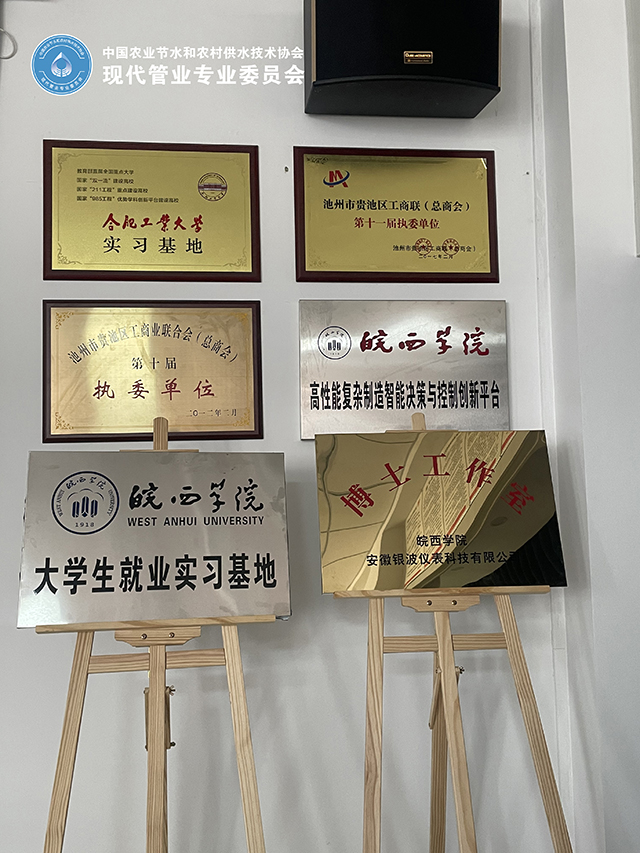 中国农业节水和农村供水技术协会
现代管业专业委员会
教育部直属全国重点大学
国家“双一流”建设高校
国家“211工程”重点建设高校
国家“985工程”优势学科创新平台建设高校
合肥工业大学
实习基地
池州市贵池区工商联（总商会）
第十一届执委单位
二〇一七年二月
池州市贵池区工商业联合会（总商会）
第十届
执委单位
二〇一二年二月
皖西学院
高性能复杂制造智能决策与控制创新平台
WEST ANHUI UNIVERSITY
1918
皖西学院
WEST ANHUI UNIVERSITY
大学生就业实习基地
博士工作室
皖西学院
安徽银波仪表科技有限公司